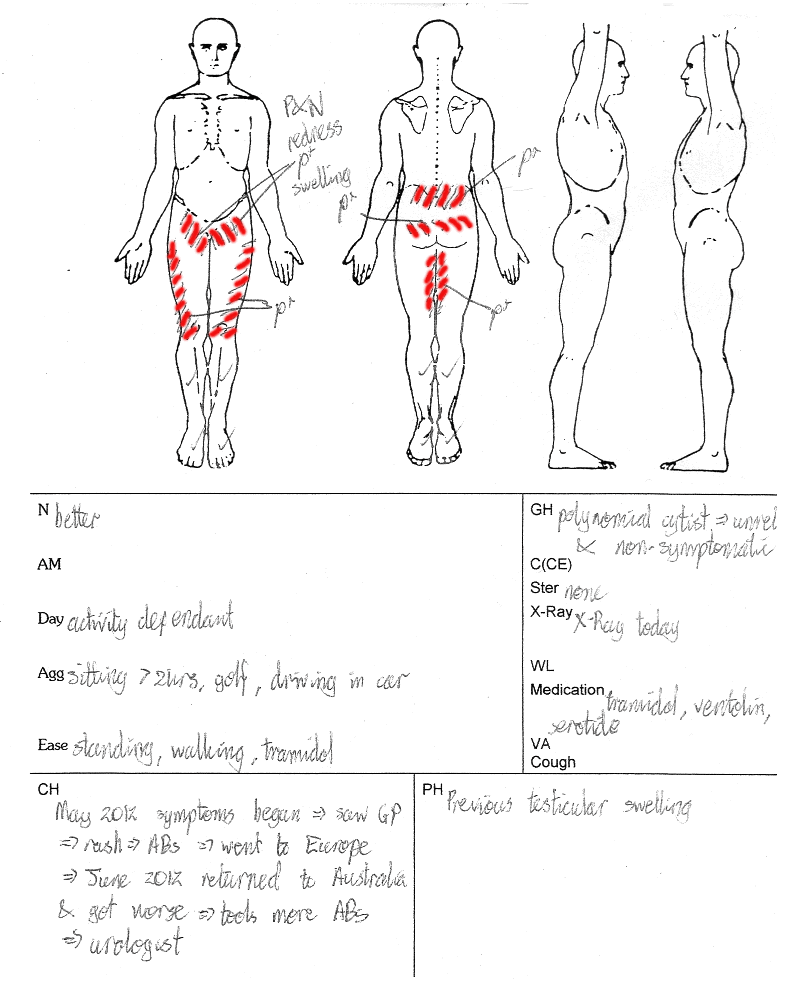 P&N
redness
p+
swelling
p+
p+
p+
p+
N better
AM
Day activity dependant
Agg sitting >2hrs, golf, driving in car
Ease standing, walking, tramidol
GH polynomial cytist ⇒ unrel
& non-symptomatic
C(CE)
Ster none
X-Ray X-Ray today
WL
Medication tramidol, ventolin,
serotide
VA
Cough
CH
May 2012 symptoms began ⇒ saw GP
⇒ rash ⇒ ABs ⇒ went to Europe
⇒ June 2012 returned to Australia
& got worse ⇒ took more ABs
⇒ urologist
PH Previous testicular swelling